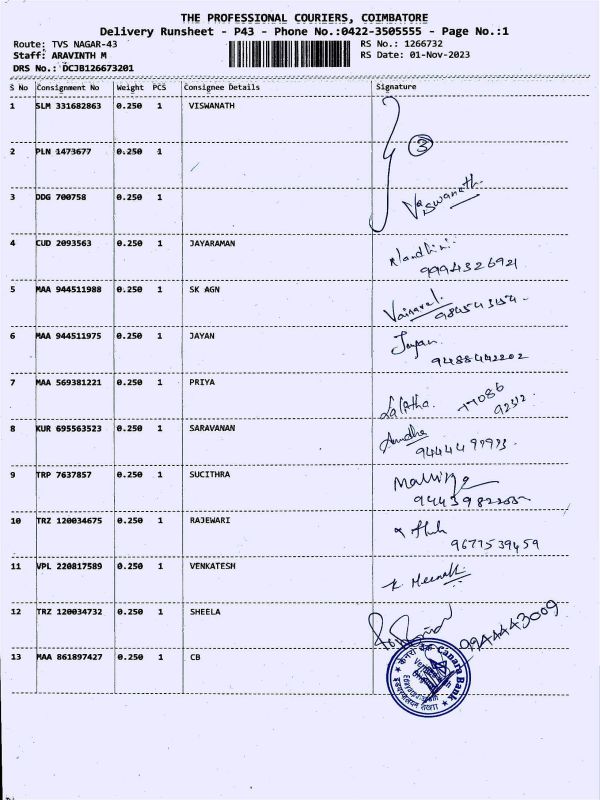 THE PROFESSIONAL COURIERS, COIMBATORE
Delivery Runsheet - P43 - Phone No.:0422-3505555 - Page No.:1
Route: TVS NAGAR-43 RS No.: 1266732
Staff: ARAVINTH M RS Date: 01-Nov-2023
DRS No.: DCJB126673201
S No Consignment No Weight PCS Consignee Details Signature
1 SLM 331682863 0.250 1 VISWANATH
3
2 PLN 1473677 0.250 1
3 DDG 700758 0.250 1 Viswanath
4 CUD 2093563 0.250 1 JAYARAMAN Nandhini
9994326921
5 MAA 944511988 0.250 1 SK AGN
6 MAA 944511975 0.250 1 JAYAN Jayan
9488442202
7 MAA 569381221 0.250 1 PRIYA Lalitha 77086
92312
8 KUR 695563523 0.250 1 SARAVANAN
9 TRP 7637857 0.250 1 SUCITHRA
10 TRZ 120034675 0.250 1 RAJEWARI
9677539459
11 VPL 220817589 0.250 1 VENKATESH
12 TRZ 120034732 0.250 1 SHEELA
9944443009
13 MAA 861897427 0.250 1 CB
केनरा बैंक Canara Bank